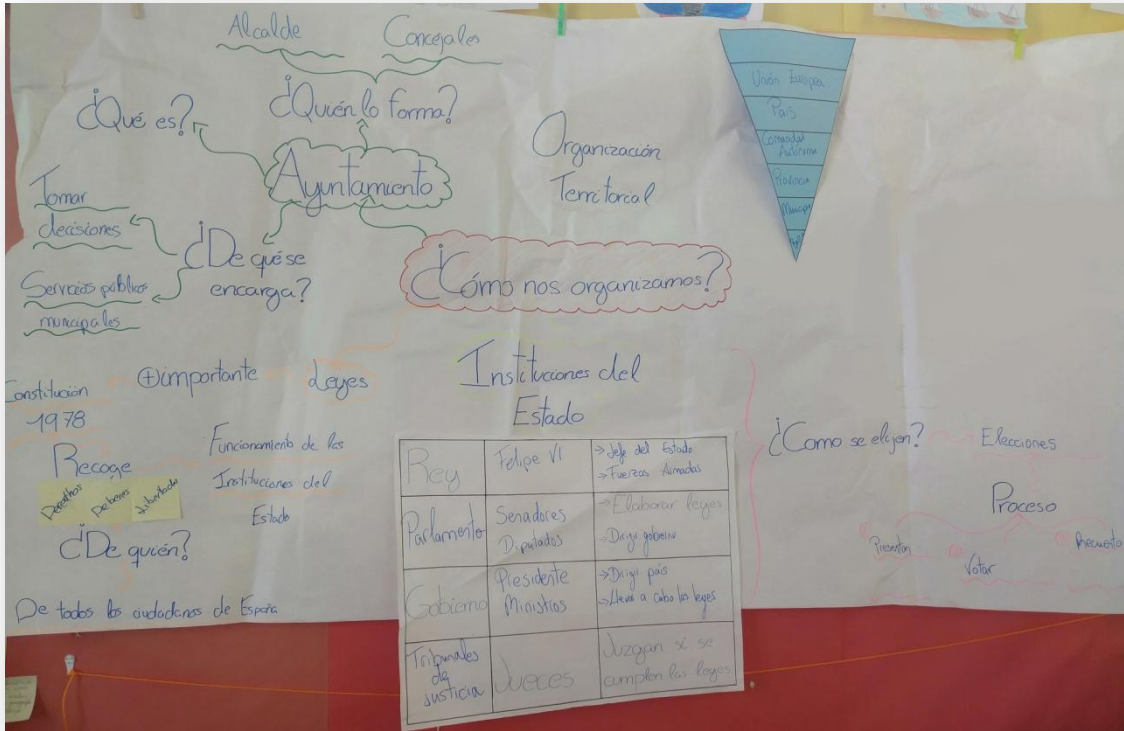 Alcalde
Concejales
¿Qué es?
¿Quién lo forma?
Ayuntamiento
Tomar
decisiones
¿De qué se
encarga?
Servicios públicos
municipales
Organización
Territorial
Unión Europea
País
Comunidad
Autónoma
Provincia
¿Cómo nos organizamos?
Constitución
1978
+ importante
Leyes
Recoge
Derechos
Deberes
Libertades
Funcionamiento de las
Instituciones del
Estado
¿De quién?
De todos los ciudadanos de España
Instituciones del
Estado
Rey
Felipe VI
→ Jefe del Estado
→ Fuerzas Armadas
Parlamento
Senadores
Diputados
→ Elaborar leyes
→ Dirigir gobierno
Gobierno
Presidente
Ministros
→ Dirigir país
→ Lleva a cabo las leyes
Tribunales
de
Justicia
Jueces
Juzgan si se
cumplen las leyes
¿Como se elijen?
Elecciones
Proceso
Presentan
Votar
Recuento